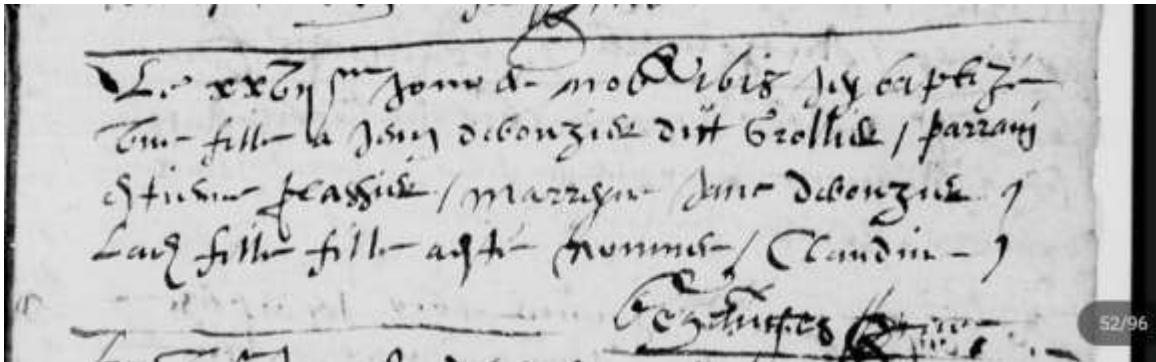 Le xxvij jour de novembre jey baptizé
Une fille a Jean debouzies dict Grollier / parrain
estienne plassier / marreyne Jane debouzies
Lad fille fille a esté nommee / Claudine
52/96